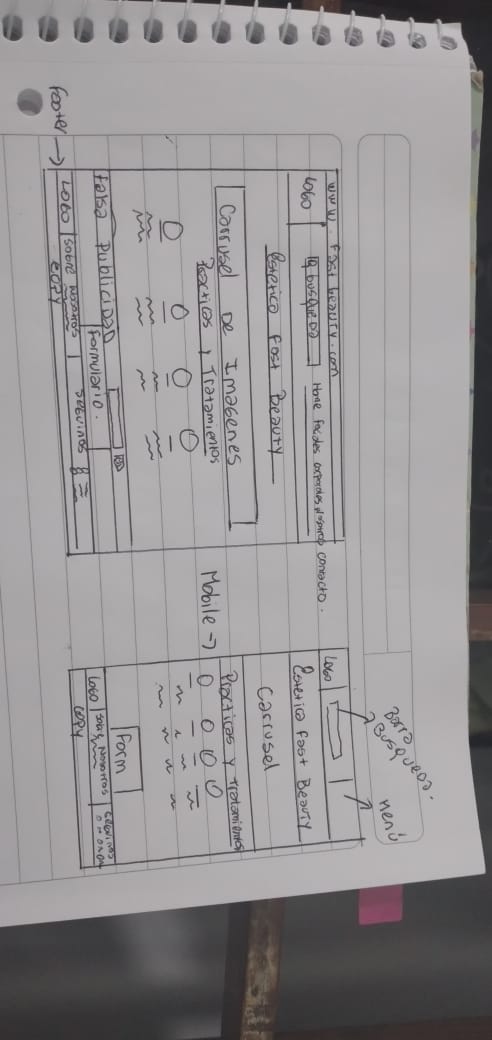 www. fast beauty.com
Logo | busqueda | Home faciales corporales nosotros contacto.
Estetica Fast Beauty
Carrusel De Imagenes
Practicas y Tratamientos
Falsa Publicidad
Formulario.
footer →
Logo | Sobre nosotros | seguinos
copy
Mobile →
Barra
Busqueda.
menú
Logo
Estetica Fast Beauty
Carrusel
Practicas y Tratamientos
Form
Logo | Sobre Nosotros | Seguinos
copy